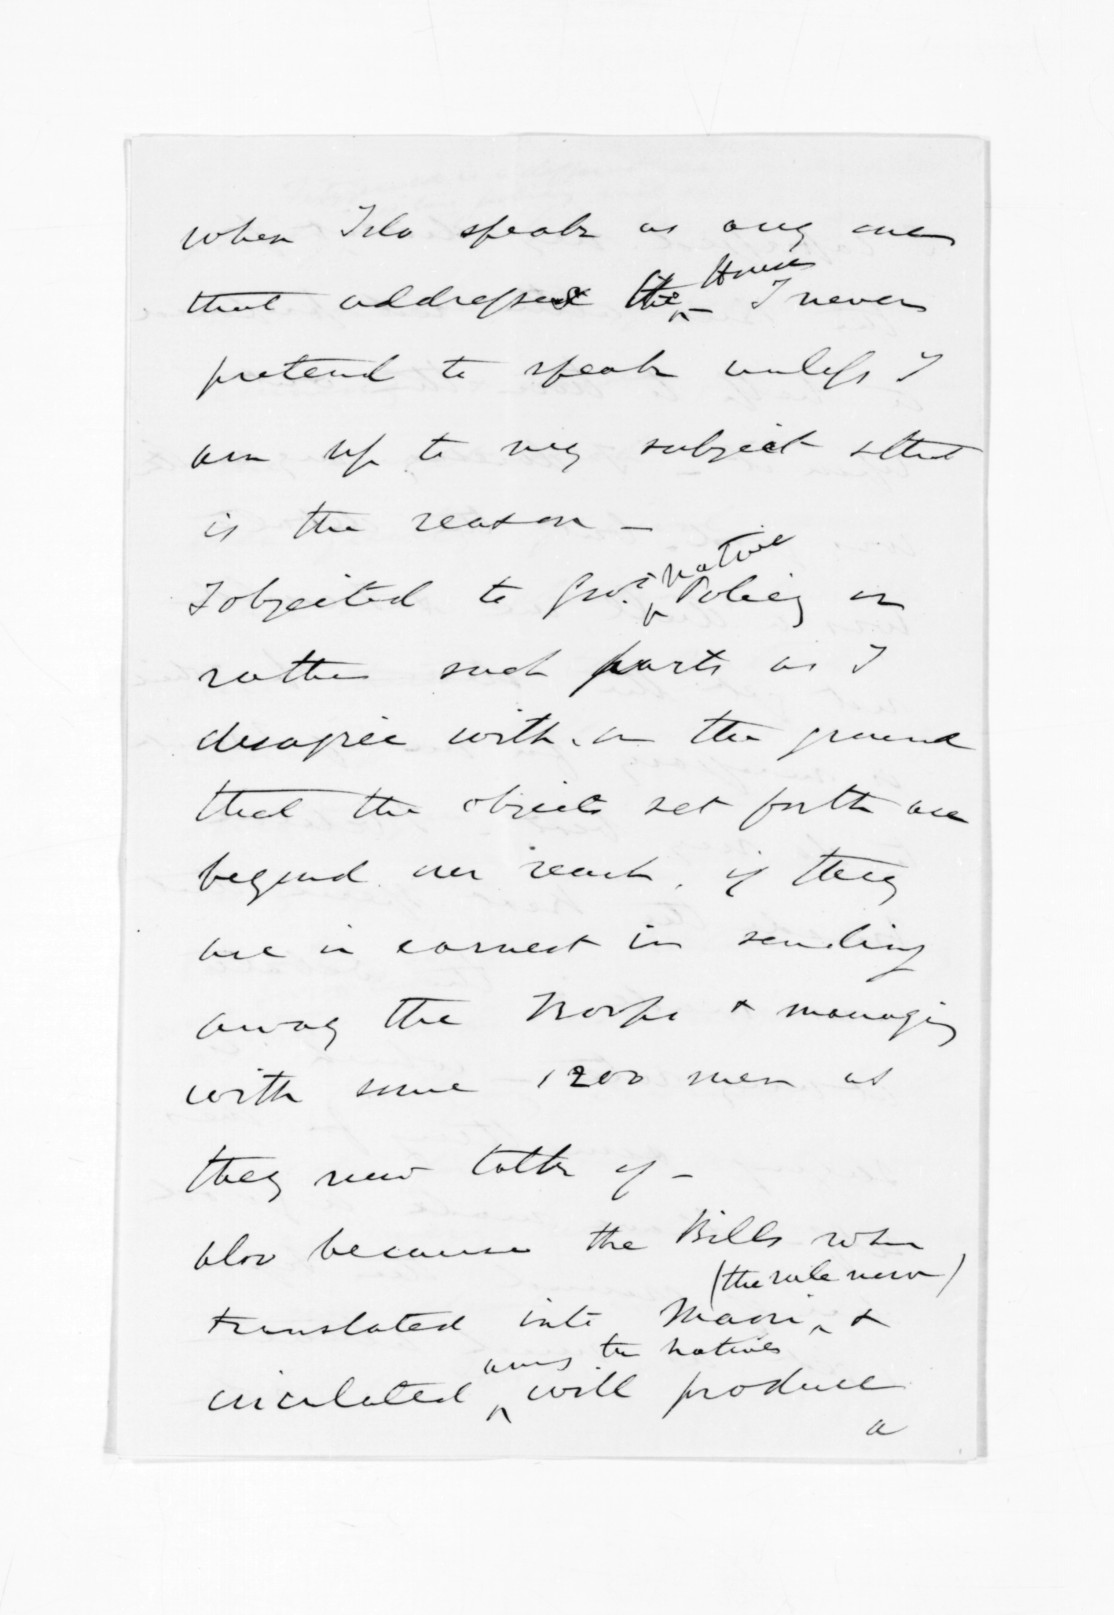 when I do speak as any one
that addresses the House - I never
pretend to speak unless I
am up to my subject & that
is the reason -
I objected to Govt. Native Policy or
rather such parts as I
disagree with, on the ground
that the objects set forth are
beyond our reach, if they
are in earnest in sending
away the Troops & managing
with some 1200 men as
they now talk of -
also because the Bills when
translated into Maori (the rule now) &
circulated amg the Natives will produce
a